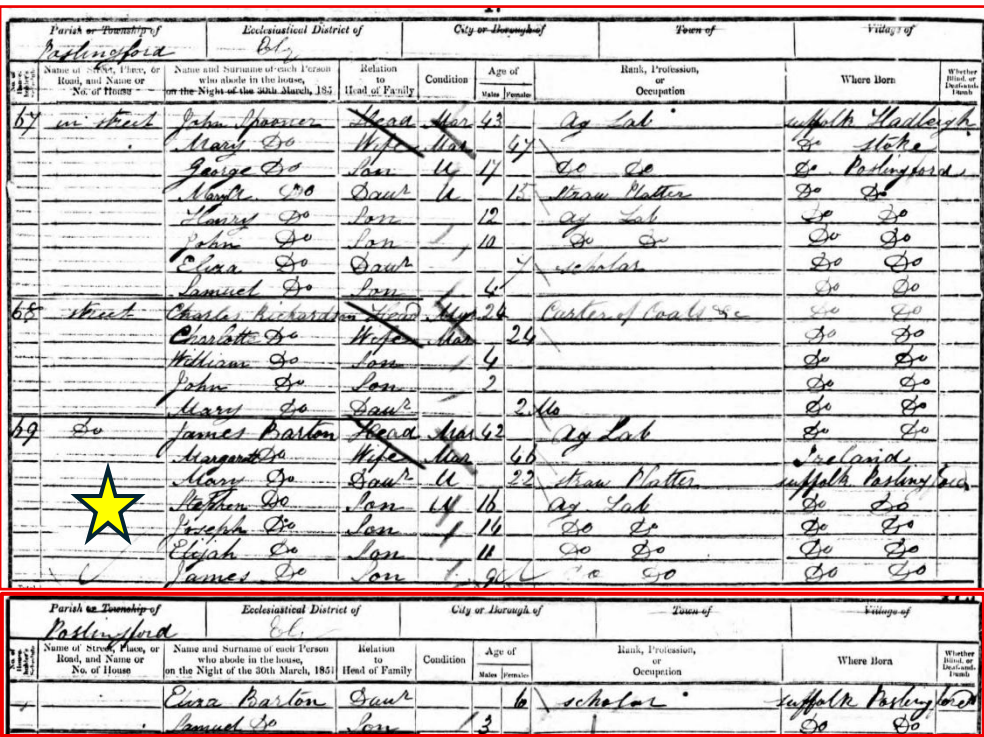 Parish or Township of Ecclesiastical District of City or Borough of Town of Village of
Poslingford
Name of Street, Place, or Road, and Name or No. of House Name and Surname of each Person who abode in the house, on the Night of the 30th March, 1851 Relation to Head of Family Condition Age of Males Females Rank, Profession, or Occupation Where Born Whether Blind, or Deaf-and-Dumb
67 in street John Spooner Head Mar 43 Ag Lab Suffolk Hadleigh
Mary Do Wife Mar 47 Do Stoke
George Do Son U 17 Do Do Do Poslingford
Do Daur U 15 Straw Platter Do Do
Harry Do Son 12 Ag Lab Do Do
John Do Son 10 Do Do Do Do
Eliza Do Daur 7 scholar Do Do
Samuel Do Son 4 Do Do
68 street Charles Richardson Head Mar 26 Carter of Coals &c Do Do
Charlotte Do Wife Mar 24 Do Do
William Do Son 4 Do Do
John Do Son 2 Do Do
Mary Do Daur 2 Mo Do Do
69 Do James Barton Head Mar 42 Ag Lab Do Do
Margaret Do Wife Mar 46 Ireland
Mary Do Daur U 22 Straw Platter Suffolk Poslingford
Stephen Do Son U 16 Ag Lab Do Do
Joseph Do Son 14 Do Do Do Do
Elijah Do Son 11 Do Do Do Do
James Do Son 9 Do Do Do Do
Parish or Township of Ecclesiastical District of City or Borough of Town of Village of
Poslingford
Name of Street, Place, or Road, and Name or No. of House Name and Surname of each Person who abode in the house, on the Night of the 30th March, 1851 Relation to Head of Family Condition Age of Males Females Rank, Profession, or Occupation Where Born Whether Blind, or Deaf-and-Dumb
Eliza Barton Daur 6 scholar Suffolk Poslingford
Samuel Do Son 3 Do Do